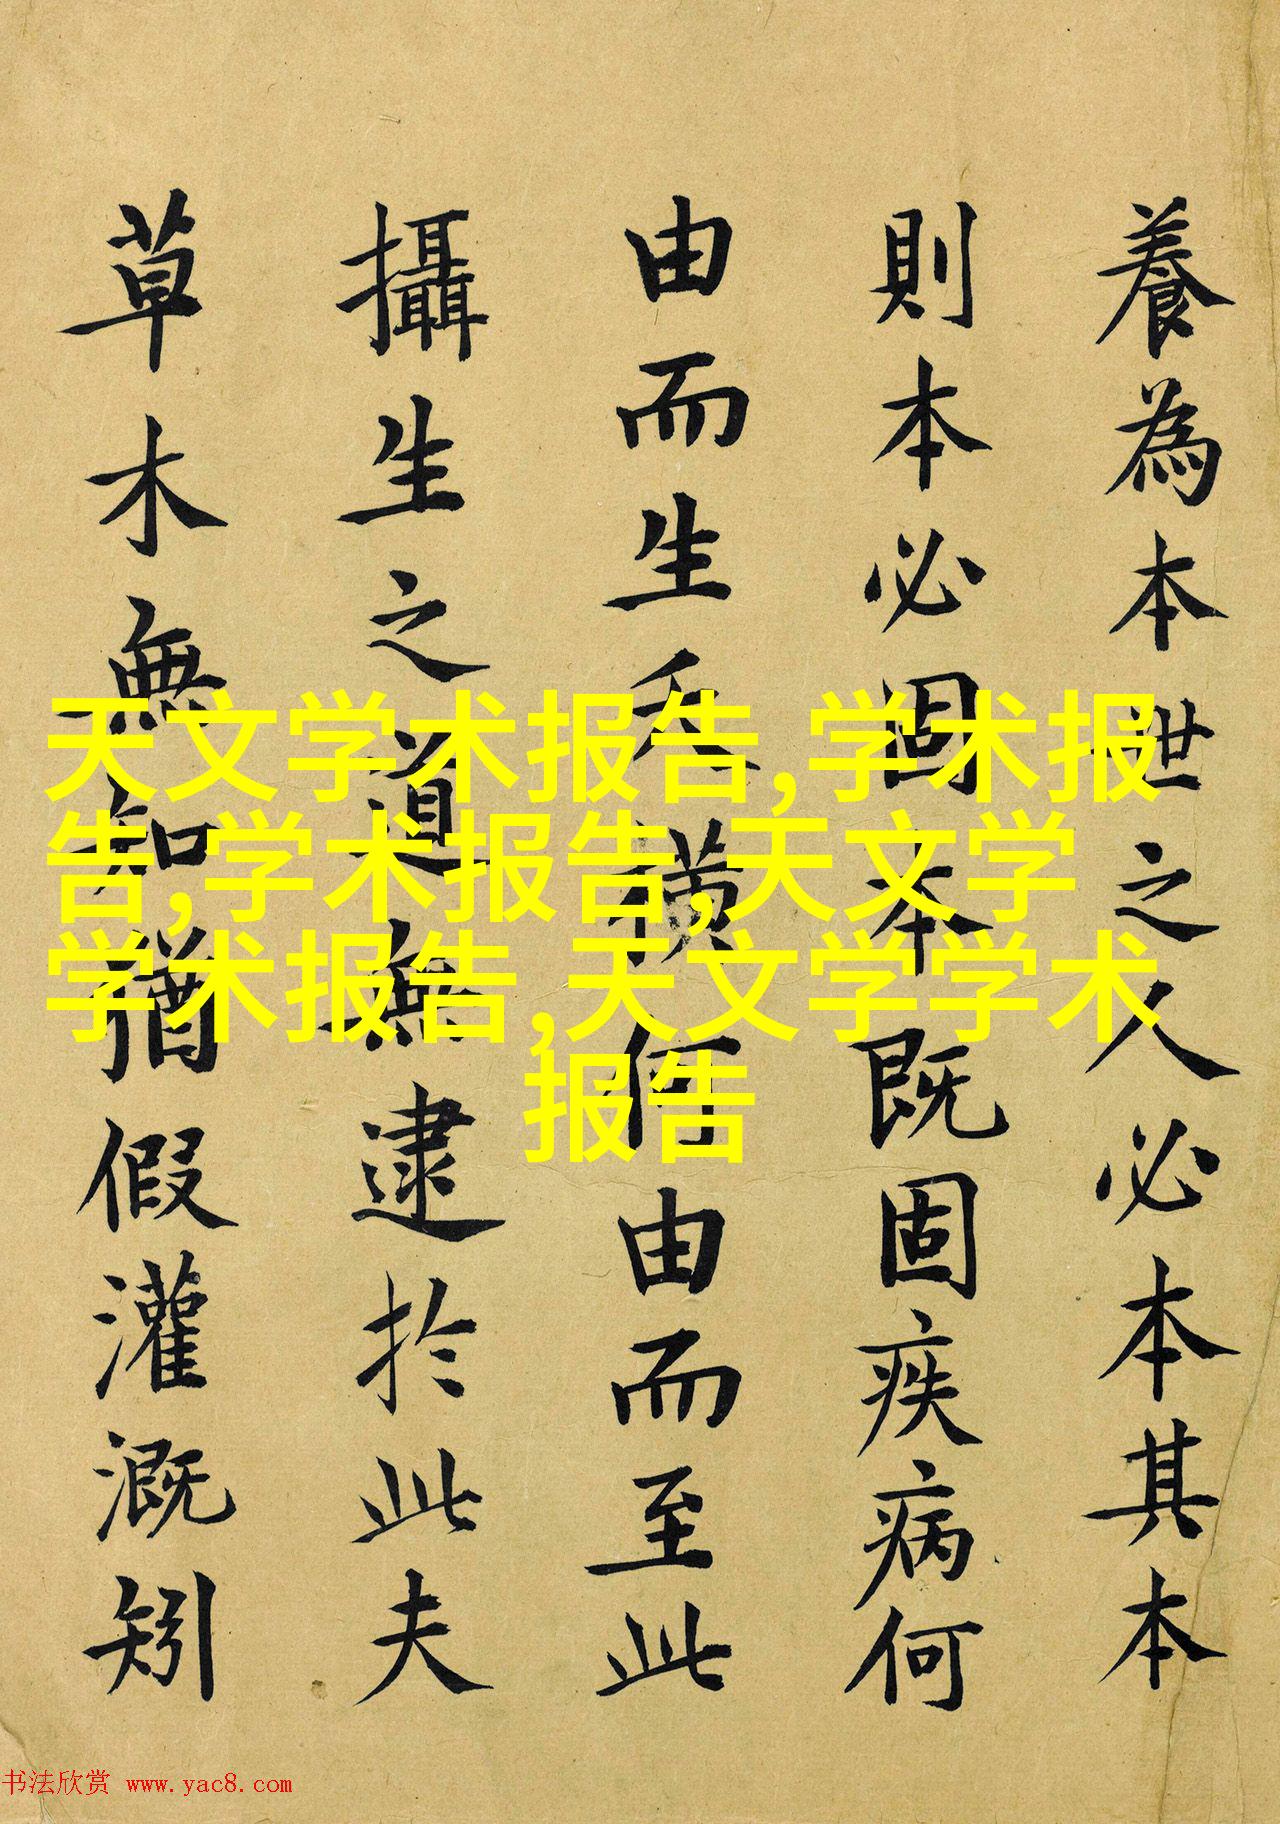 養為本世之人必本其本
則本必固本既固疾病何
由而生夭橫何由而至此
攝生之道無逮於此夫
草木無知猶假灌溉矧
天文学术报告,学术报
告,学术报告,天文学
学术报告,天文学学术
报告
书法欣赏 www.yac8.com